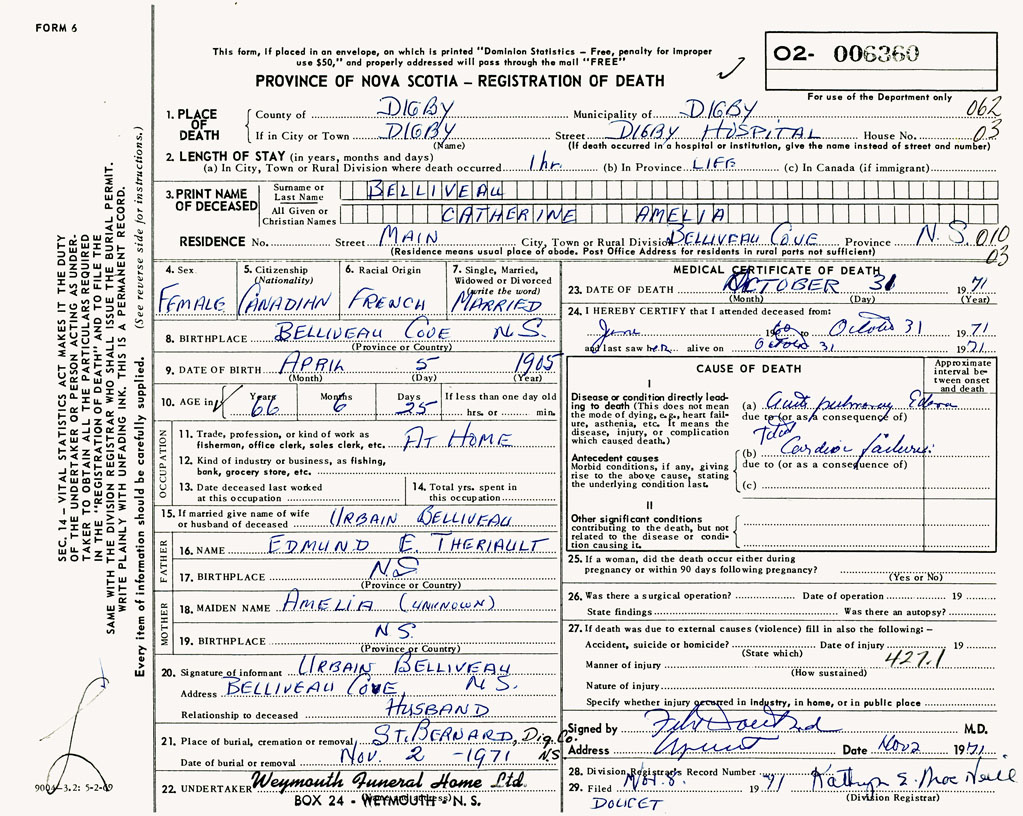 FORM 6
This form, if placed in an envelope, on which is printed "Dominion Statistics – Free, penalty for improper
use $50," and properly addressed will pass through the mail "FREE"
O2- 006360
PROVINCE OF NOVA SCOTIA – REGISTRATION OF DEATH
For use of the Department only
062
03
1. PLACE OF DEATH
County of DIGBY Municipality of DIGBY
If in City or Town DIGBY Street DIGBY HOSPITAL House No.
(Name) (If death occurred in a hospital or institution, give the name instead of street and number)
2. LENGTH OF STAY (in years, months and days)
(a) In City, Town or Rural Division where death occurred 1 hr. (b) In Province LIFE (c) In Canada (if immigrant)
3. PRINT NAME OF DECEASED
Surname or Last Name BELLIVEAU
All Given or Christian Names CATHERINE AMELIA
RESIDENCE No. Street MAIN City, Town or Rural Division BELLIVEAU COVE Province N.S. 010
(Residence means usual place of abode. Post Office Address for residents in rural parts not sufficient) 03
4. Sex FEMALE
5. Citizenship (Nationality) CANADIAN
6. Racial Origin FRENCH
7. Single, Married, Widowed or Divorced (write the word) MARRIED
8. BIRTHPLACE BELLIVEAU COVE N S.
(Province or Country)
9. DATE OF BIRTH APRIL 5 1905
(Month) (Day) (Year)
10. AGE in Years 66 Months 6 Days 25 If less than one day old
hrs. or min.
OCCUPATION
11. Trade, profession, or kind of work as
fisherman, office clerk, sales clerk, etc. AT HOME
12. Kind of industry or business, as fishing,
bank, grocery store, etc.
13. Date deceased last worked
at this occupation
14. Total yrs. spent in
this occupation
15. If married give name of wife
or husband of deceased URBAIN BELLIVEAU
FATHER
16. NAME EDMUND E. THERIAULT
17. BIRTHPLACE N S
(Province or Country)
MOTHER
18. MAIDEN NAME AMELIA (UNKNOWN)
19. BIRTHPLACE N S.
(Province or Country)
20. Signature of informant URBAIN BELLIVEAU
Address BELLIVEAU COVE, N S.
Relationship to deceased HUSBAND
21. Place of burial, cremation or removal ST. BERNARD, Dig. Co.
Date of burial or removal NOV. 2 -1971 NS
22. UNDERTAKER Weymouth Funeral Home Ltd.
BOX 24 - WEYMOUTH - N. S.
(Name and address)
MEDICAL CERTIFICATE OF DEATH
23. DATE OF DEATH OCTOBER 31 1971
(Month) (Day) (Year)
24. I HEREBY CERTIFY that I attended deceased from:
June 1960 to October 31 1971
and last saw her alive on October 31 1971
CAUSE OF DEATH
Approximate interval between onset and death
I
Disease or condition directly leading to death (This does not mean the mode of dying, e.g., heart failure, asthenia, etc. It means the disease, injury, or complication which caused death.)
(a) Acute pulmonary Edema
due to (or as a consequence of)
Antecedent causes
Morbid conditions, if any, giving rise to the above cause, stating the underlying condition last.
(b) Total Cardiac failure
due to (or as a consequence of)
(c)
II
Other significant conditions
contributing to the death, but not related to the disease or condition causing it.
25. If a woman, did the death occur either during
pregnancy or within 90 days following pregnancy?
(Yes or No)
26. Was there a surgical operation? Date of operation 19
State findings Was there an autopsy?
27. If death was due to external causes (violence) fill in also the following: –
Accident, suicide or homicide? Date of injury 19
(State which) 427.1
Manner of injury
(How sustained)
Nature of injury
Specify whether injury occurred in industry, in home, or in public place
Signed by M.D.
Address Date Nov 2 1971
28. Division Registrar's Record Number
29. Filed Nov. 8. 1971 Kathryn E. MacNeill
(Division Registrar)
DOUCET
SEC. 14 – VITAL STATISTICS ACT MAKES IT THE DUTY
OF THE UNDERTAKER OR PERSON ACTING AS UNDER-
TAKER TO OBTAIN ALL THE PARTICULARS REQUIRED
IN THE "REGISTRATION OF DEATH" AND TO FILE THE
SAME WITH THE DIVISION REGISTRAR WHO SHALL ISSUE THE BURIAL PERMIT.
WRITE PLAINLY WITH UNFADING INK. THIS IS A PERMANENT RECORD.
Every item of information should be carefully supplied. (See reverse side for instructions.)